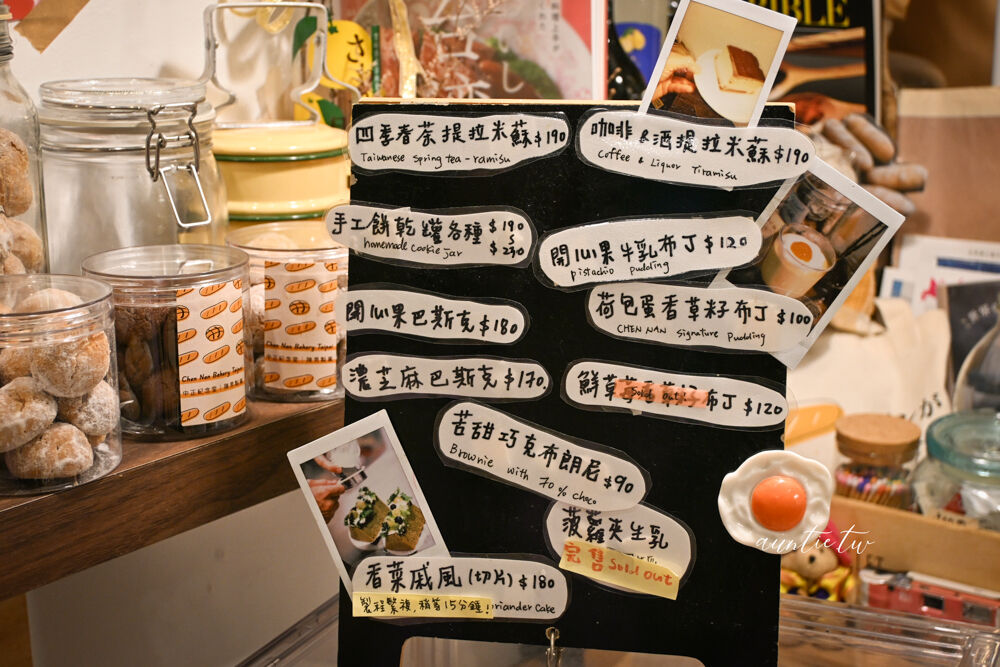 四季春茶提拉米蘇 $190
Taiwanese Spring tea-ramisu
咖啡&酒提拉米蘇 $190
Coffee & Liquor Tiramisu
手工餅乾罐各種 $190
$230
homemade cookie jar
開心果牛乳布丁 $120
pistachio pudding
開心果巴斯克 $180
荷包蛋香草籽布丁 $100
CHEN NAN Signature Pudding
濃芝麻巴斯克 $170
鮮草 布丁 $120
Sold out!
苦甜巧克布朗尼 $90
Brownie with 70% choco
菠蘿夾生乳
完售 Sold out
香菜戚風(切片) $180
製程繁複，稍等15分鐘！
riander Cake
Chen Nan Bakery Taipei
Chen Nan Bakery Taipei
auntie.tw